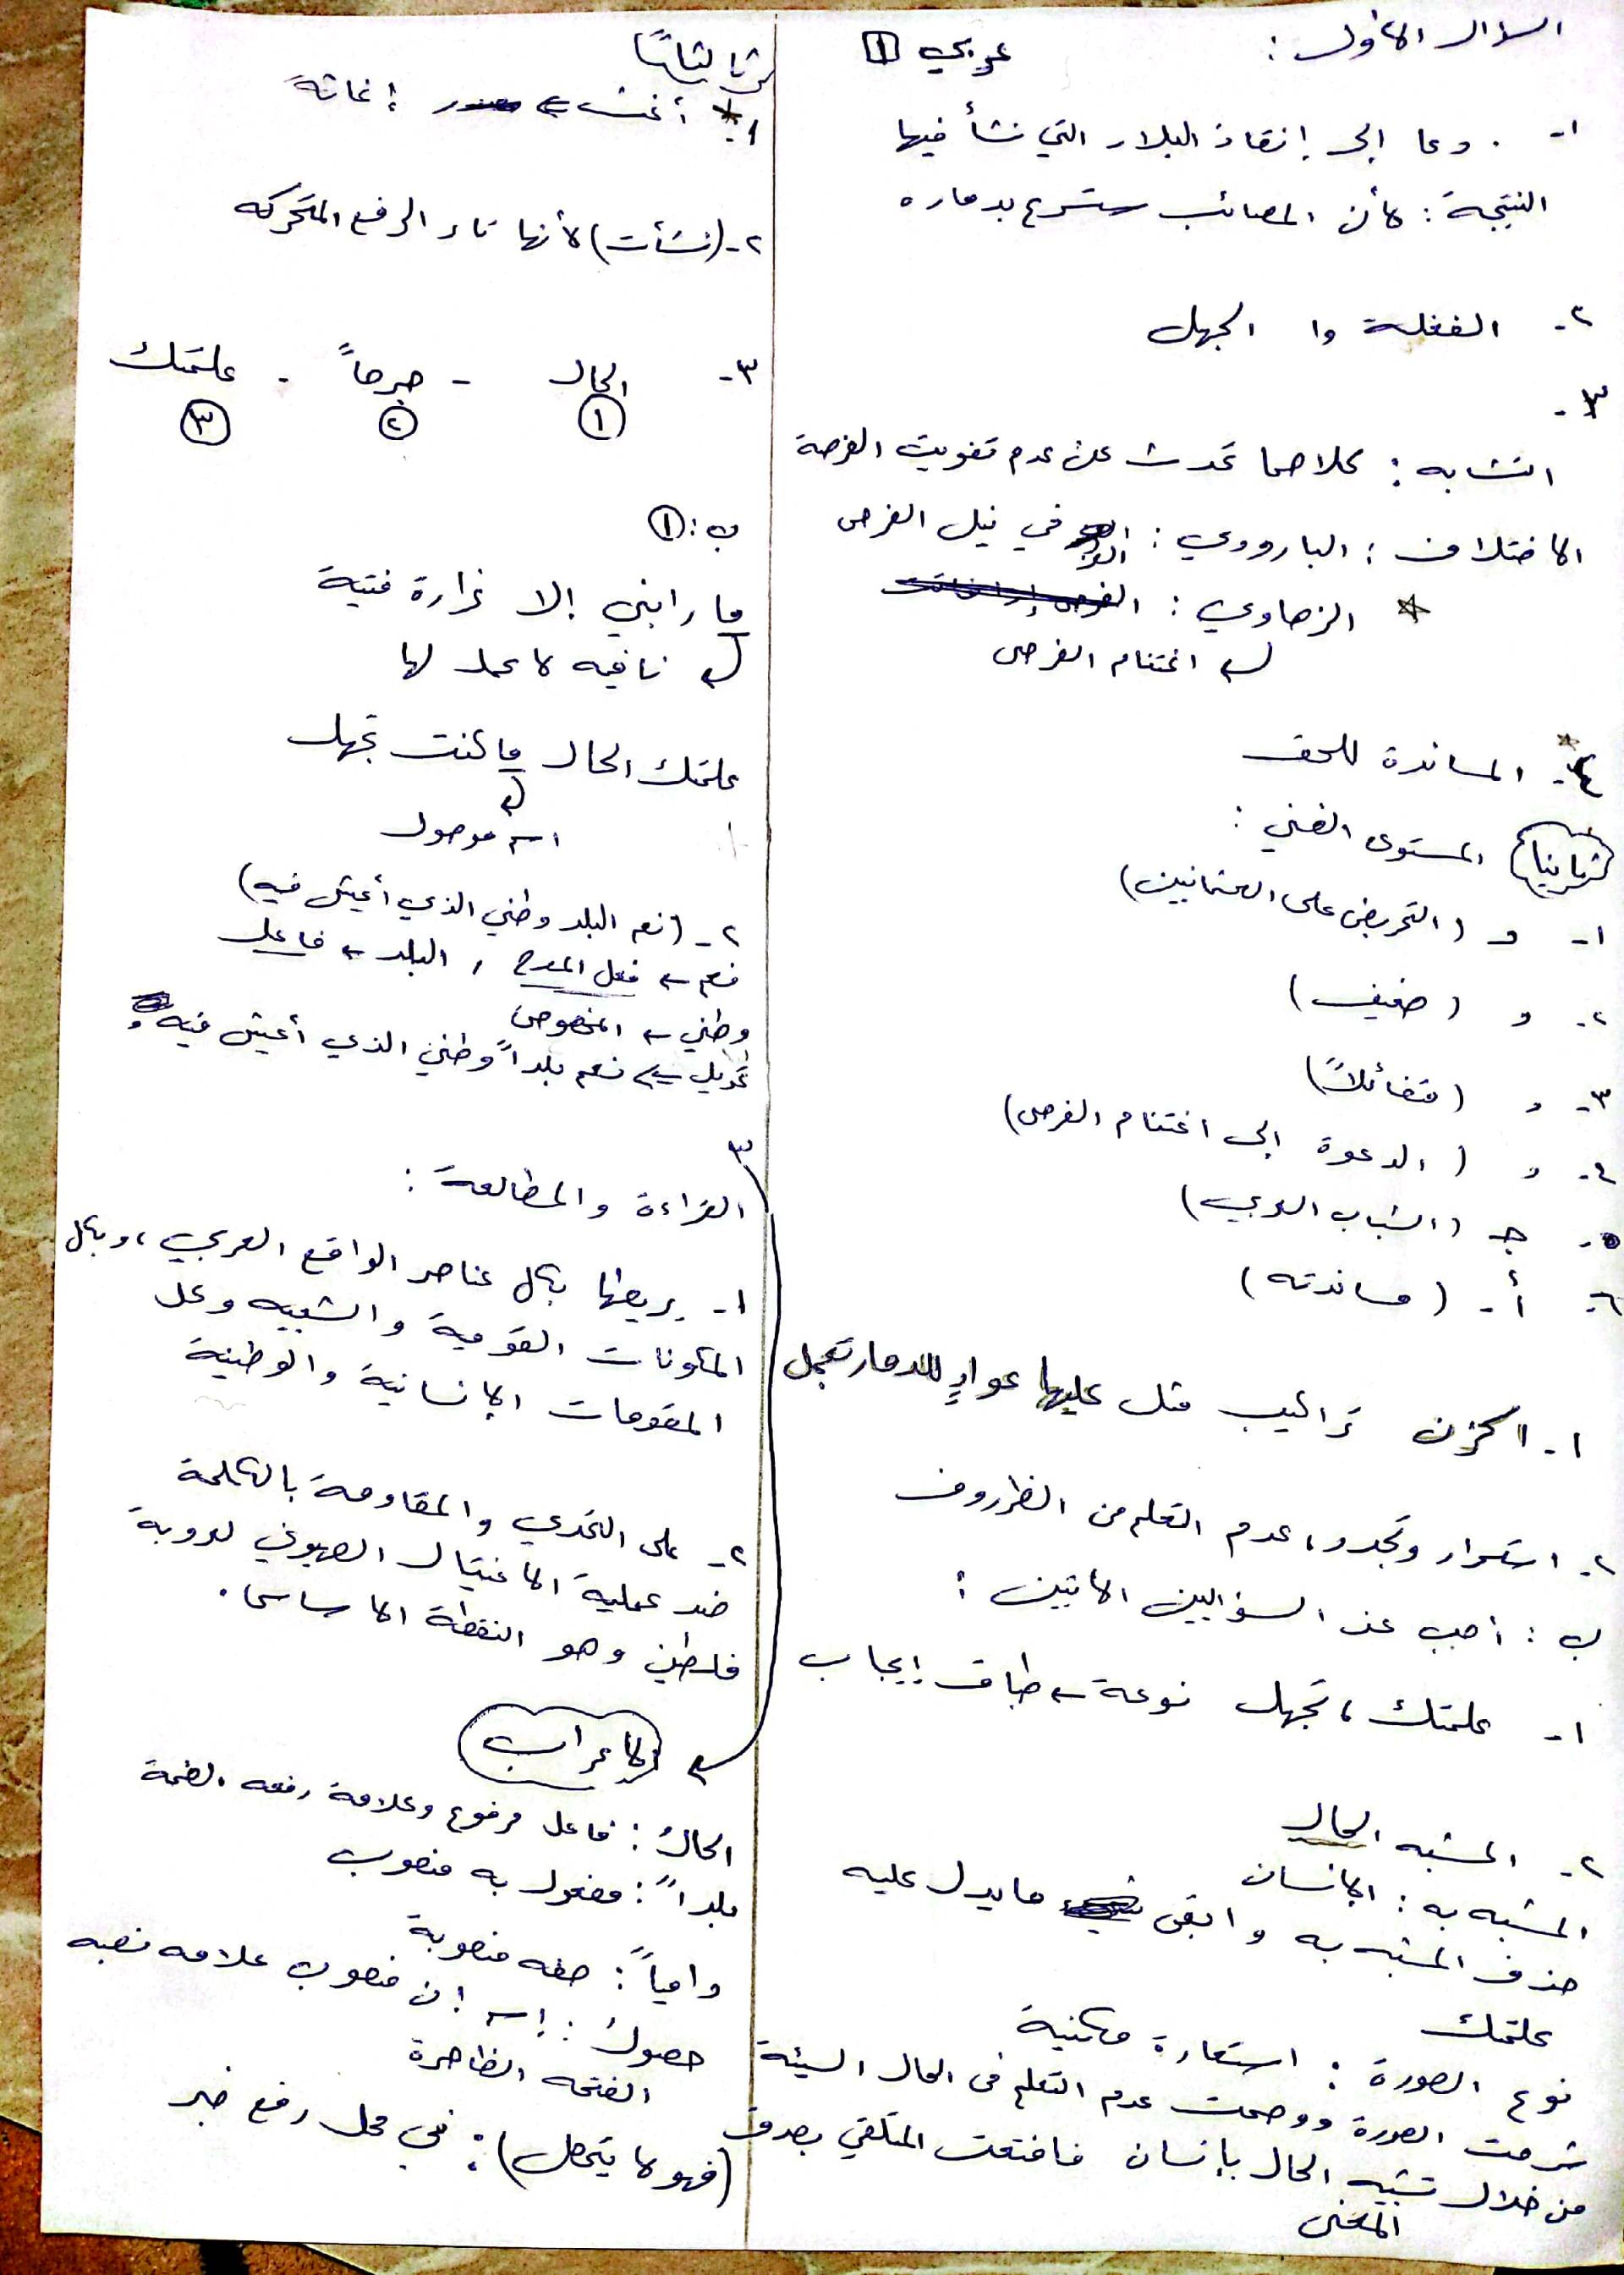 السؤال الأول :
عربي 1
١- . دعا إلى إنقاذ البلاد التي نشأ فيها
النتيجة : لأن المصائب ستسرع بدماره
٢- الغفلة وا الجهل
٣-
التشابه : كلاهما تحدث عن عدم تفويت الفرصة
الاختلاف : البارودي : في نيل الفرص
الزهاوي :
اغتنام الفرص
٤- المساندة للحق
ثانيا المستوى الفني :
١- د (التحريض على العثمانيين)
٢- د (ضعيف)
٣- د (متفائلاً)
٤- د (الدعوة إلى اغتنام الفرص)
٥- جـ (الشباب العربي)
٦- أ- (مساندته)
١- الحزن تراكيب مثل عليها عوادٍ للدمار تعجل
٢- استمرار وتجدد، عدم التعلم من الظروف
ب : أجب عن السؤاليين الاتيين :
١- علمتك، تجهل نوعة ← طباق إيجاب
٢- المشبه الحال
المشبه به : الإنسان
حذف المشبه به وابقى ما يدل عليه
علمتك
نوع الصورة : استعارة مكنية
شرحت الصورة ووضحت عدم التعلم في الحال السيئة
من خلال تشبيه الحال بإنسان فاقتعت المتلقي بصدق
المعنى
ثالثاً
١- أغث ← إغاثة
٢- (نشأت) لأنها تاء الرفع المتحركه
٣- الحال - صرحاً - علمتك
١ ٢ ٣
ب : ١
ما رابني إلا غرارة فتية
نافيه لا عمل لها
علمتك الحال ما كنت تجهل
اسم موصول
٢- (نعم البلد وطني الذي أعيش فيه)
نعم ← فعل المدح ، البلد ← فاعل
وطني ← المخصوص
تحويل ← نعم بلداً وطني الذي أعيش فيه
٣
القراءة والمطالعة :
١- يربطها بكل عناصر الواقع العربي، وبكل
المكونات القومية والشعبيه وكل
المقومات الإنسانية والوطنية
٢- على التحدي والمقاومة بالكلمة
ضد عملية الاغتيال الصهيوني لعروبة
فلسطين وهو النقطة الاساسى .
الاعراب
الحالُ : فاعل مرفوع وعلامة رفعه الضمة
بلداً : مفعول به منصوب
داعياً : صفه منصوبة
حصولَ : إسم إن منصوب علامه نصبه
الفتحه الظاهرة
(فهو لا يتحصل) : في محل رفع خبر